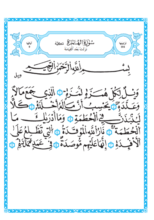 سُورَةُ الهُمَزَةِ
بِسْمِ اللَّهِ الرَّحْمَٰنِ الرَّحِيمِ
وَيْلٌ لِّكُلِّ هُمَزَةٍ لُّمَزَةٍ الَّذِي جَمَعَ مَالًا
وَعَدَّدَهُ يَحْسَبُ أَنَّ مَالَهُ أَخْلَدَهُ كَلَّا
لَيُنبَذَنَّ فِي الْحُطَمَةِ وَمَا أَدْرَىٰكَ مَا
الْحُطَمَةُ نَارُ اللَّهِ الْمُوقَدَةُ الَّتِي تَطَّلِعُ عَلَى
الْأَفْئِدَةِ إِنَّهَا عَلَيْهِم مُّؤْصَدَةٌ فِي عَمَدٍ مُّمَدَّدَةٍ